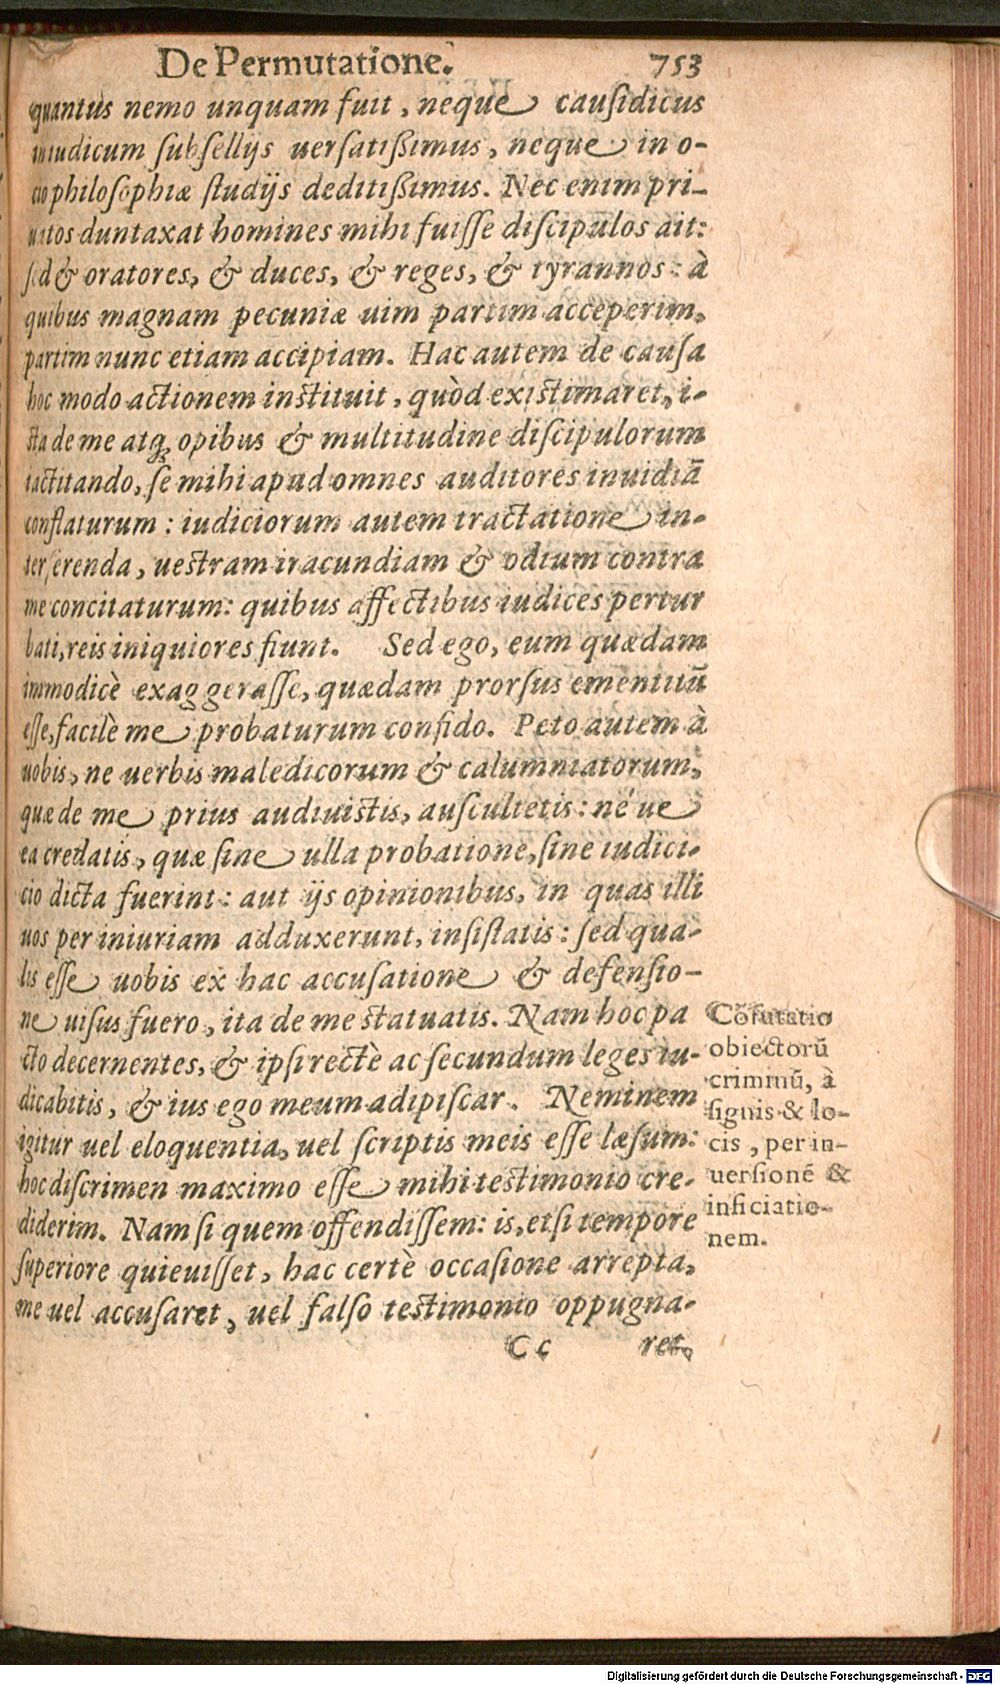 De Permutatione. 753
quantus nemo unquam fuit, neque causidicus
in iudicum subsellijs uersatißimus, neque in o-
cio philosophiæ studijs deditißimus. Nec enim pri-
uatos duntaxat homines mihi fuisse discipulos ait:
sed & oratores, & duces, & reges, & tyrannos: à
quibus magnam pecuniæ uim partim acceperim,
partim nunc etiam accipiam. Hac autem de causa
hoc modo actionem instituit, quòd existimaret, i-
sta de me atq; opibus & multitudine discipulorum
iactitando, se mihi apud omnes auditores inuidiā
conflaturum: iudiciorum autem tractatione in-
terserenda, uestram iracundiam & odium contra
me concitaturum: quibus affectibus iudices pertur
bati, reis iniquiores fiunt. Sed ego, eum quædam
immodicè exaggerasse, quædam prorsus ementitū
esse, facilè me probaturum confido. Peto autem à
uobis, ne uerbis maledicorum & calumniatorum,
quæ de me prius audiuistis, auscultetis: né ue
ea credatis, quæ sine ulla probatione, sine iudici-
cio dicta fuerint: aut ijs opinionibus, in quas illi
uos per iniuriam adduxerunt, insistatis: sed qua-
lis esse uobis ex hac accusatione & defensio-
ne uisus fuero, ita de me statuatis. Nam hoc pa
cto decernentes, & ipsi rectè ac secundum leges iu-
dicabitis, & ius ego meum adipiscar. Neminem
igitur uel eloquentia, uel scriptis meis esse læsum:
hoc discrimen maximo esse mihi testimonio cre-
diderim. Nam si quem offendissem: is, etsi tempore
superiore quieuisset, hac certè occasione arrepta,
me uel accusaret, uel falso testimonio oppugna-
Cc ret,
Cōfutatio
obiectorū
criminū, à
signis & lo-
cis, per in-
uersioné &
inficiatio-
nem.
Digitalisierung gefördert durch die Deutsche Forschungsgemeinschaft - DFG